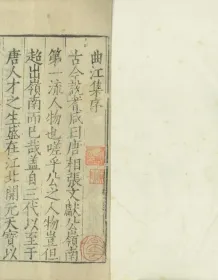 曲江集序
古今説者咸曰唐相張文獻公嶺南
第一流人物也嗟乎公之人物豈但
超出嶺南而已哉蓋自三代以至于
唐人才之生盛在江北開元天寶以